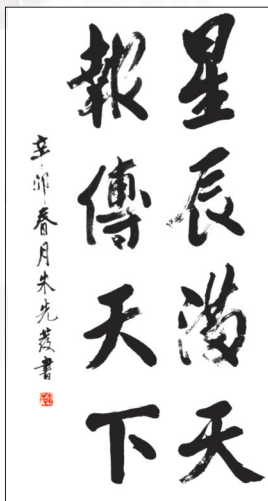 星辰滿天
報傳天下
辛卯春月朱先發書